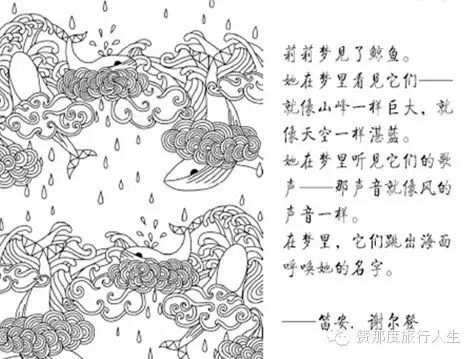 莉莉梦见了鲸鱼。
她在梦里看见它们——
就像山峰一样巨大，就
像天空一样湛蓝。
她在梦里听见它们的歌
声——那声音就像风的
声音一样。
在梦里，它们跳出海面
呼唤她的名字。
——笛安．谢尔登
赞那度旅行人生